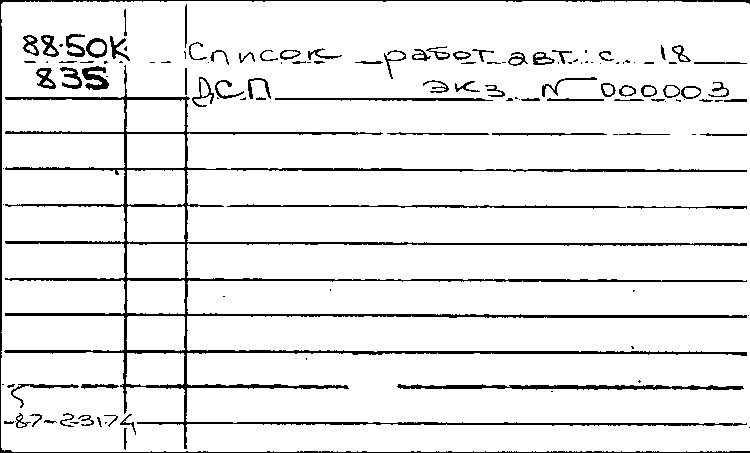 88-50К Список работ авт: с. 18
835 ДСП экз № 000003
87-23174